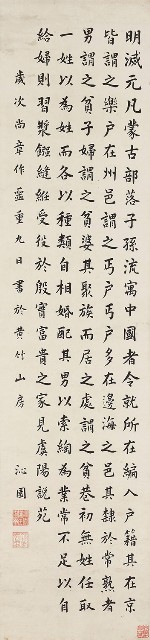 明滅元凡蒙古部落子孫流寓中國者令就所在編入戶籍其在京
皆謂之樂戶在州邑謂之丐戶丐戶多在邊海之邑其隸於常熟者
男謂之貧子婦謂之貧婆其聚族而居之處謂之貧巷初無姓任取
一姓以為姓而各以種類自相婚配其男以索綯為業常不足以自
給婦則習漿縫紉受役於殷實富貴之家見虞陽說苑
歲次尚章作噩重九日書於黄竹山房
沁園